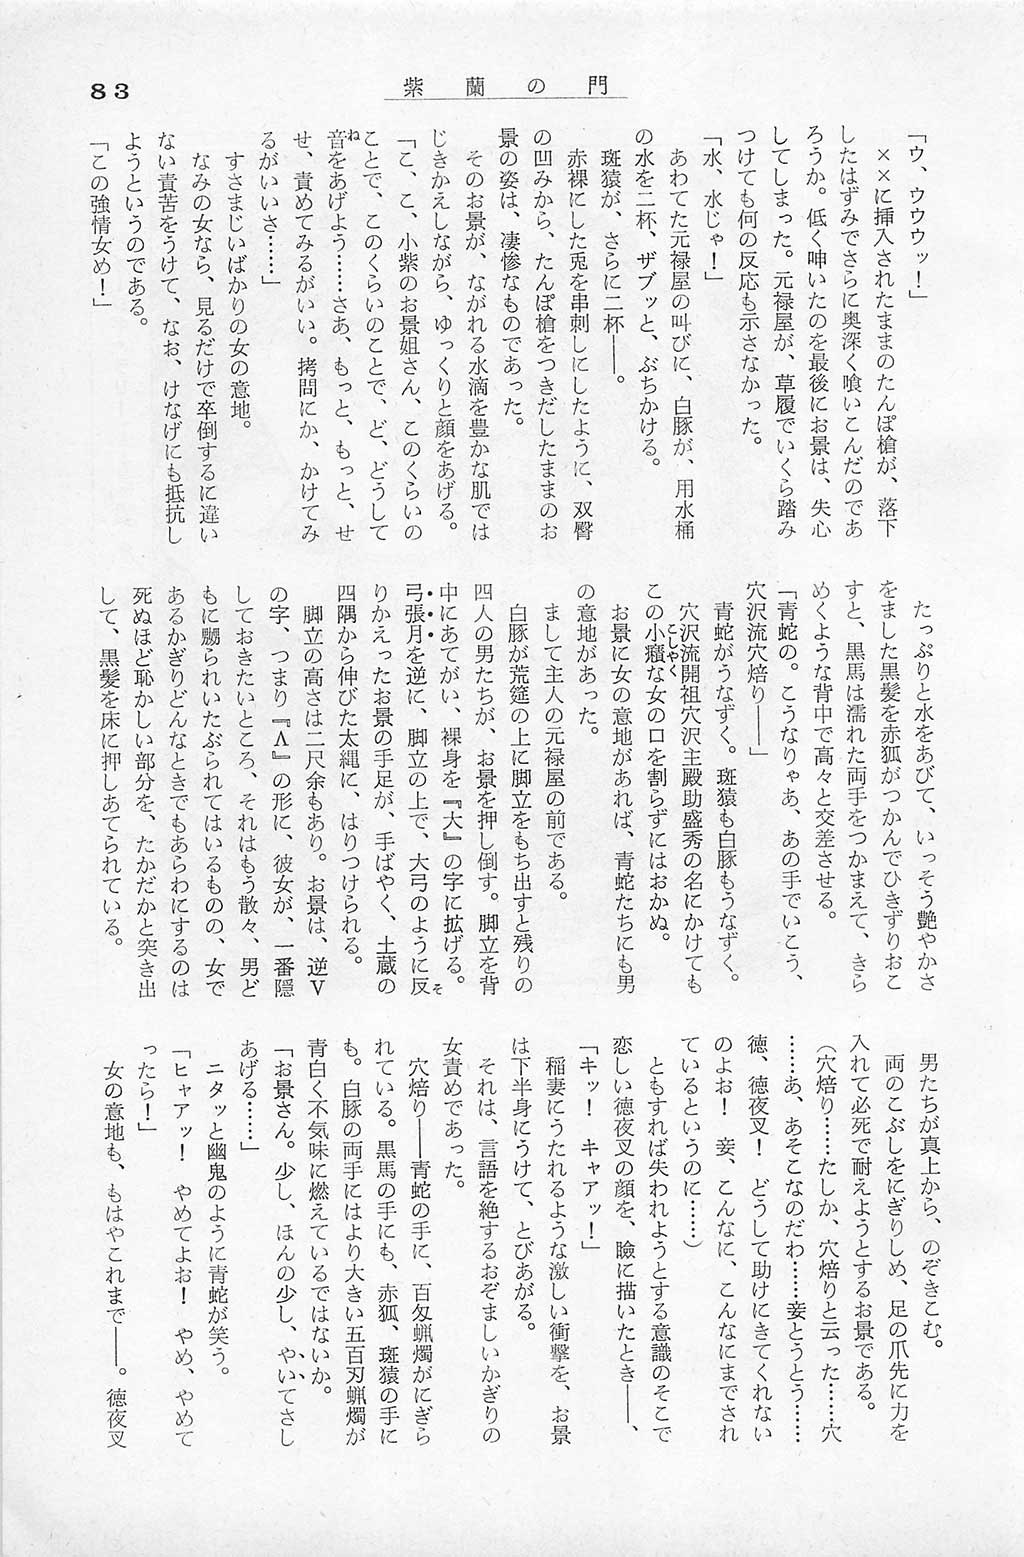 83
紫蘭の門
「ウ、ウウウッ！」
××に挿入されたままのたんぽ槍が、落下
したはずみでさらに奥深く喰いこんだのであ
ろうか。低く呻いたのを最後にお景は、失心
してしまった。元禄屋が、草履でいくら踏み
つけても何の反応も示さなかった。
「水、水じゃ！」
あわてた元禄屋の叫びに、白豚が、用水桶
の水を二杯、ザブッと、ぶちかける。
斑猿が、さらに二杯――。
赤裸にした兎を串刺しにしたように、双臀
の凹みから、たんぽ槍をつきだしたままのお
景の姿は、凄惨なものであった。
そのお景が、ながれる水滴を豊かな肌では
じきかえしながら、ゆっくりと顔をあげる。
「こ、こ、小紫のお景姐さん、このくらいの
ことで、このくらいのことで、ど、どうして
音をあげよう……さあ、もっと、もっと、せ
せ、責めてみるがいい。拷問にか、かけてみ
るがいいさ……」
すさまじいばかりの女の意地。
なみの女なら、見るだけで卒倒するに違い
ない責苦をうけて、なお、けなげにも抵抗し
ようというのである。
「この強情女め！」
たっぷりと水をあびて、いっそう艶やかさ
をました黒髪を赤狐がつかんでひきずりおこ
すと、黒馬は濡れた両手をつかまえて、きら
めくような背中で高々と交差させる。
「青蛇の。こうなりゃあ、あの手でいこう、
穴沢流穴焙り――」
青蛇がうなずく。斑猿も白豚もうなずく。
穴沢流開祖穴沢主殿助盛秀の名にかけても
この小癪な女の口を割らずにはおかぬ。
お景に女の意地があれば、青蛇たちにも男
の意地があった。
まして主人の元禄屋の前である。
白豚が荒筵の上に脚立をもち出すと残りの
四人の男たちが、お景を押し倒す。脚立を背
中にあてがい、裸身を『大』の字に拡げる。
弓張月を逆に、脚立の上で、大弓のように反
りかえったお景の手足が、手ばやく、土蔵の
四隅から伸びた太縄に、はりつけられる。
脚立の高さは二尺余もあり。お景は、逆Ｖ
の字、つまり『Λ』の形に、彼女が、一番隠
しておきたいところ、それはもう散々、男ど
もに嬲られいたぶられてはいるものの、女で
あるかぎりどんなときでもあらわにするのは
死ぬほど恥かしい部分を、たかだかと突き出
して、黒髪を床に押しあてられている。
男たちが真上から、のぞきこむ。
両のこぶしをにぎりしめ、足の爪先に力を
入れて必死で耐えようとするお景である。
（穴焙り……たしか、穴焙りと云った……穴
……あ、あそこなのだわ……妾とうとう……
徳、徳夜叉！　どうして助けにきてくれない
のよお！　妾、こんなに、こんなにまでされ
ているというのに……）
ともすれば失われようとする意識のそこで
恋しい徳夜叉の顔を、瞼に描いたとき――、
「キッ！　キャアッ！」
稲妻にうたれるような激しい衝撃を、お景
は下半身にうけて、とびあがる。
それは、言語を絶するおぞましいかぎりの
女責めであった。
穴焙り――青蛇の手に、百匁蝋燭がにぎら
れている。黒馬の手にも、赤狐、斑猿の手に
も。白豚の両手にはより大きい五百刃蝋燭が
青白く不気味に燃えているではないか。
「お景さん。少し、ほんの少し、やいてさし
あげる……」
ニタッと幽鬼のように青蛇が笑う。
「ヒャアッ！　やめてよお！　やめ、やめて
ったら！」
女の意地も、もはやこれまで――。徳夜叉